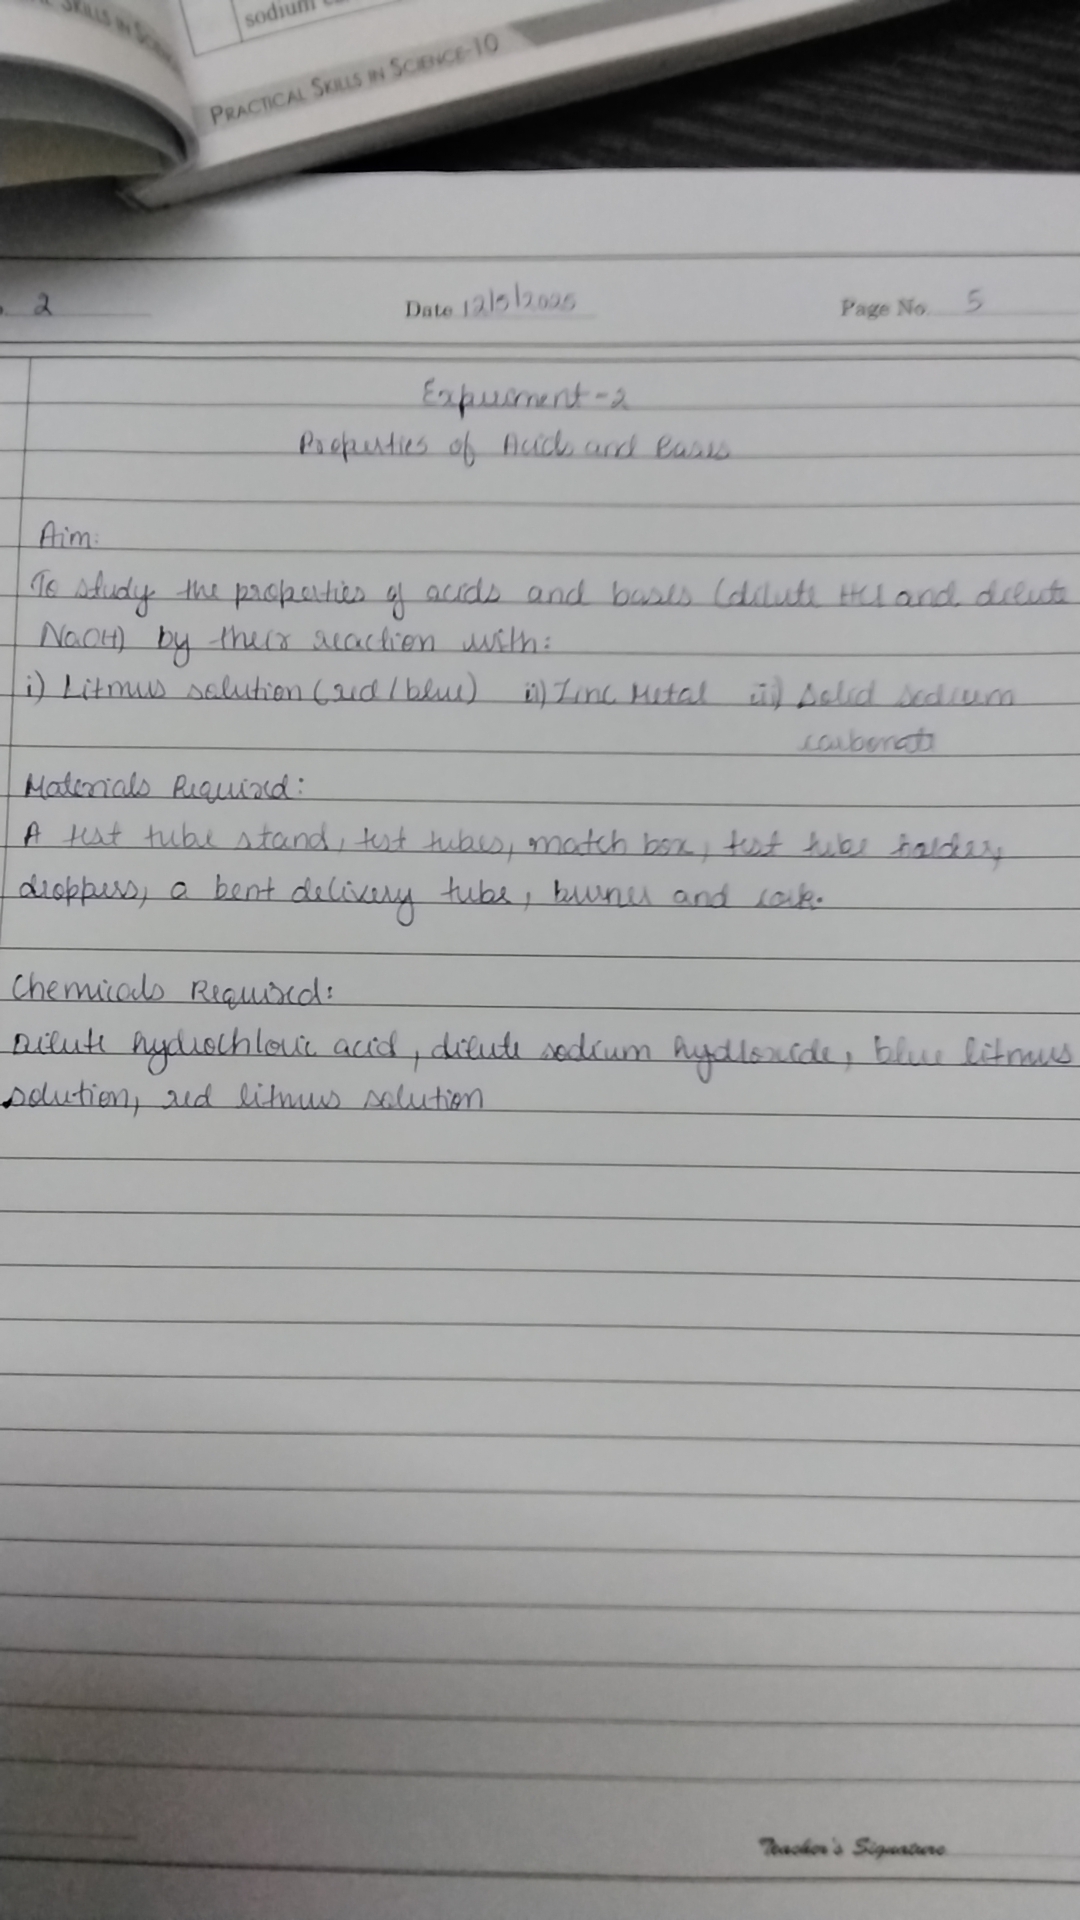 SKILLS IN
sodium
PRACTICAL SKILLS IN SCIENCE-10
2
Date 12/5/2025
Page No. 5
Experiment-2
Properties of Acids and Bases
Aim:
To study the properties of acids and bases (dilute HCl and dilute
NaOH) by their reaction with:
i) Litmus solution (red/blue) ii) Zinc Metal iii) Solid sodium
carbonate
Materials Required:
A test tube stand, test tubes, match box, test tube holder,
droppers, a bent delivery tube, burner and cork.
Chemicals Required:
Dilute hydrochloric acid, dilute sodium hydroxide, blue litmus
solution, red litmus solution
Teacher's Signature